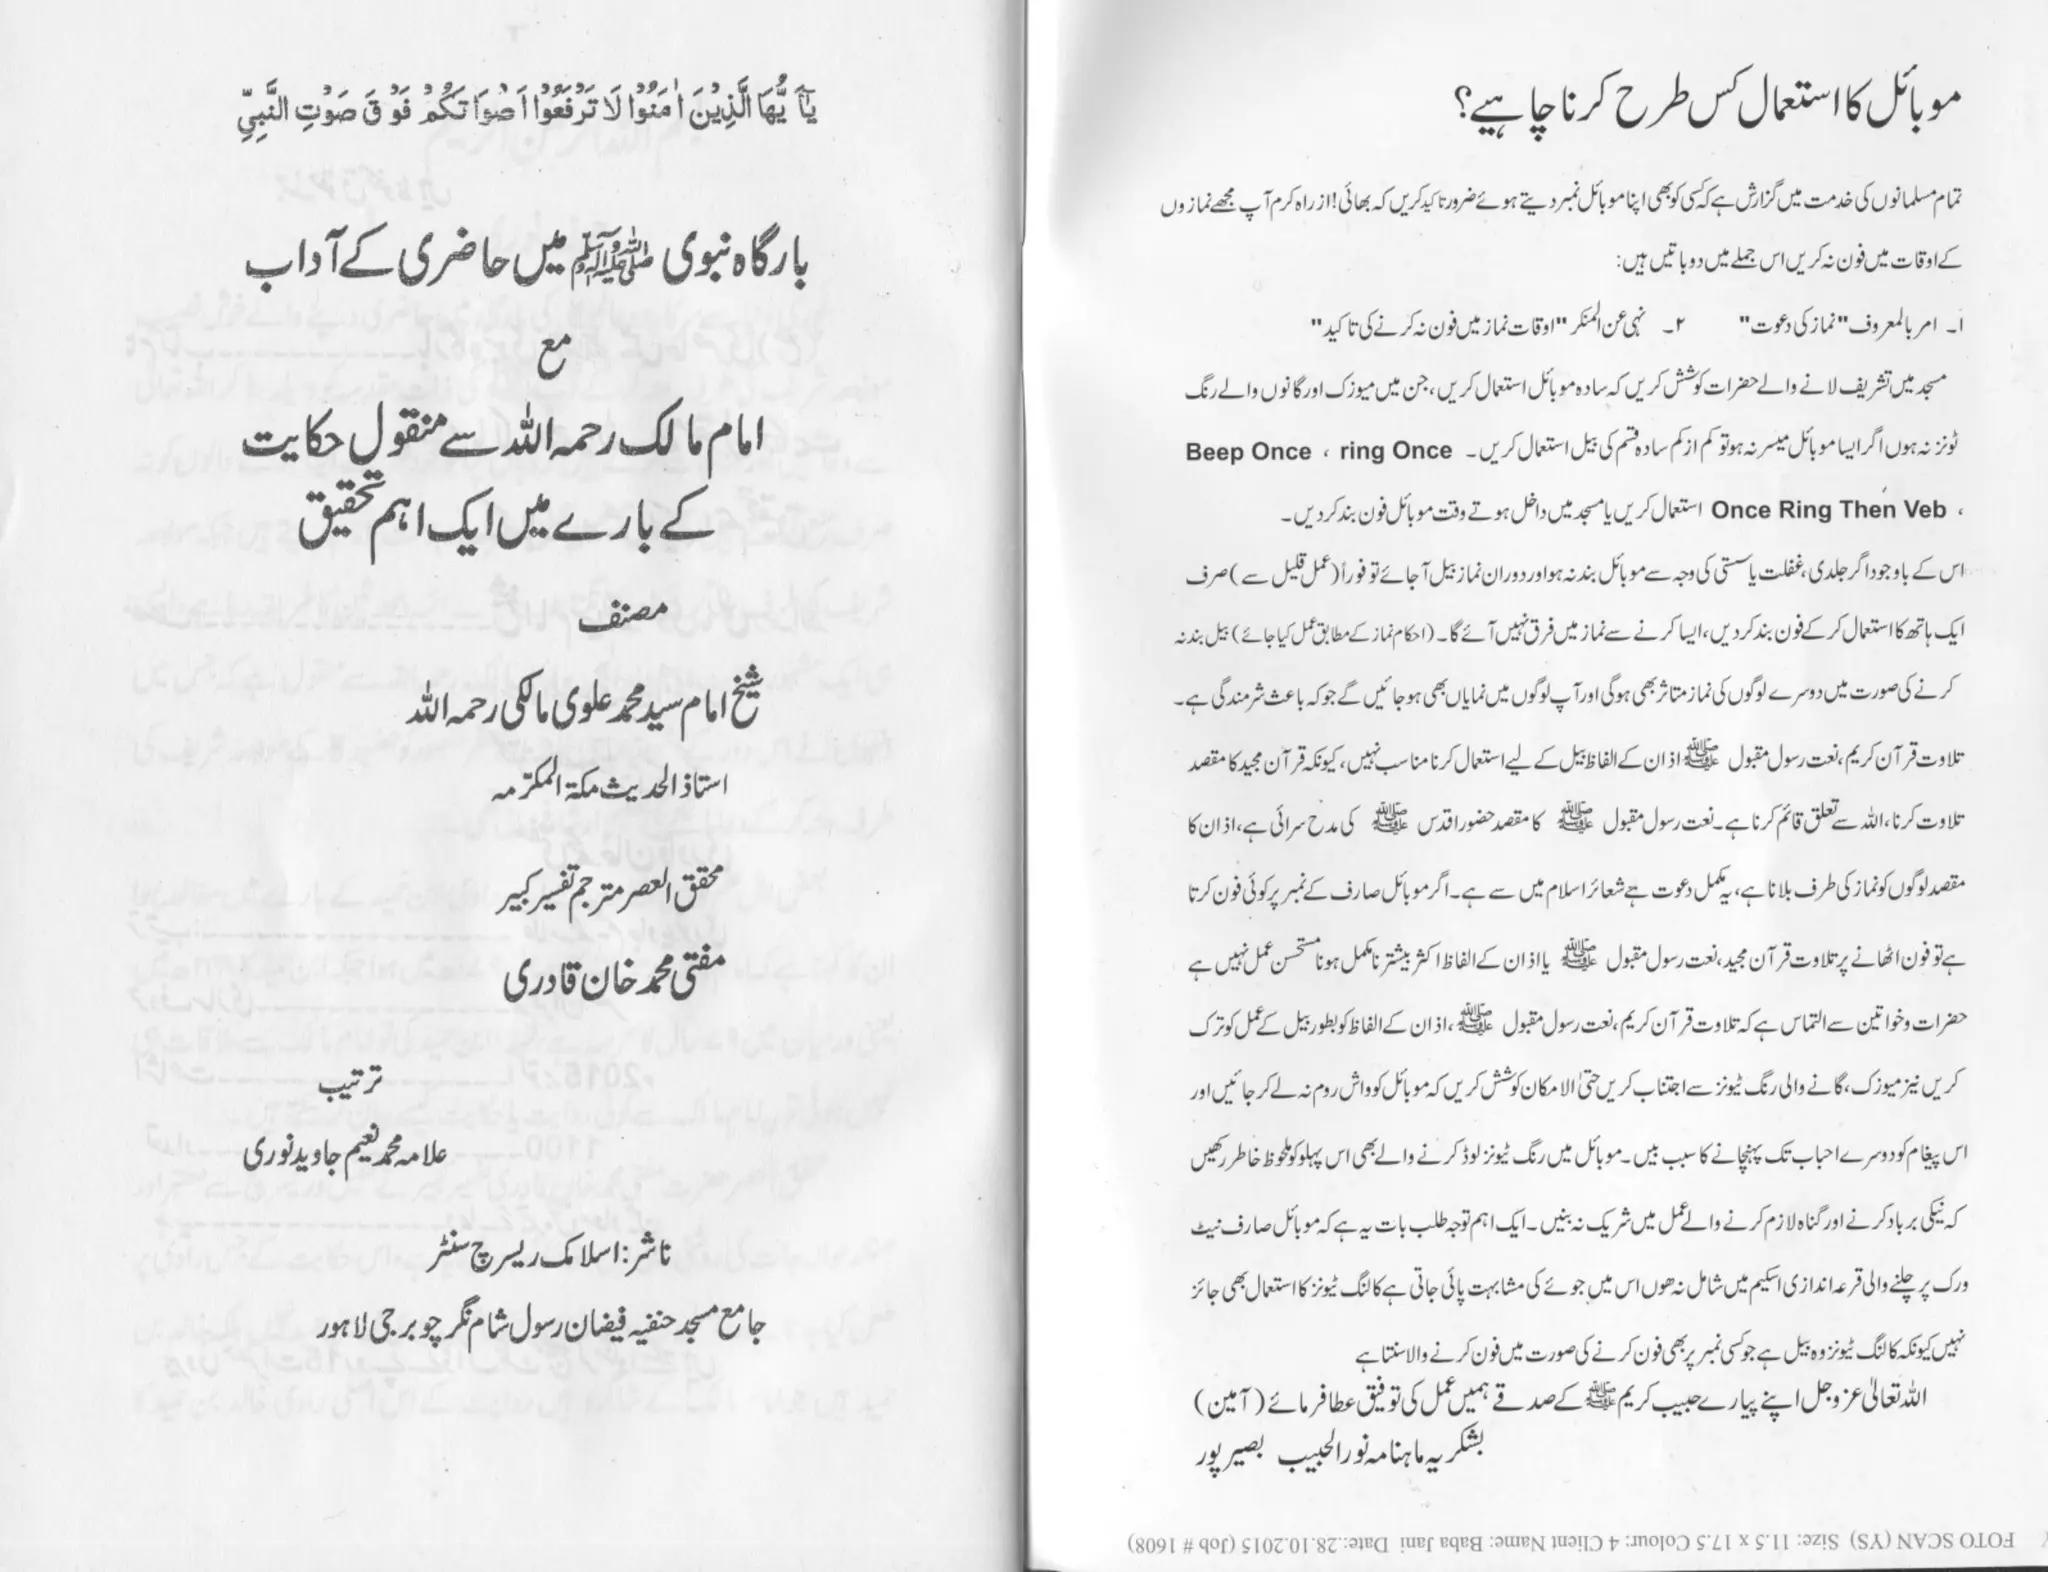 موبائل کا استعمال کس طرح کرنا چاہیے؟
تمام مسلمانوں کی خدمت میں گزارش ہے کہ کسی کو بھی اپنا موبائل نمبر دیتے ہوئے ضرور تاکید کریں کہ بھائی! از راہ کرم آپ مجھے نمازوں
کے اوقات میں فون نہ کریں اس جملے میں دو باتیں ہیں:
۱۔ امر بالمعروف "نماز کی دعوت" ۲۔ نہی عن المنکر "اوقات نماز میں فون نہ کرنے کی تاکید"
مسجد میں تشریف لانے والے حضرات کوشش کریں کہ سادہ موبائل استعمال کریں، جن میں میوزک اور گانوں والے رنگ
ٹونز نہ ہوں اگر ایسا موبائل میسر نہ ہو تو کم از کم سادہ قسم کی بیل استعمال کریں۔ Beep Once ، ring Once
، Once Ring Then Veb استعمال کریں یا مسجد میں داخل ہوتے وقت موبائل فون بند کر دیں۔
اس کے باوجود اگر جلدی، غفلت یا سستی کی وجہ سے موبائل بند نہ ہو اور دوران نماز بیل آ جائے تو فوراً (عمل قلیل سے) صرف
ایک ہاتھ کا استعمال کر کے فون بند کر دیں، ایسا کرنے سے نماز میں فرق نہیں آئے گا۔ (احکام نماز کے مطابق عمل کیا جائے) بیل بند نہ
کرنے کی صورت میں دوسرے لوگوں کی نماز متاثر بھی ہوگی اور آپ لوگوں میں نمایاں بھی ہو جائیں گے جو کہ باعث شرمندگی ہے۔
تلاوت قرآن کریم، نعت رسول مقبول ﷺ اذان کے الفاظ بیل کے لیے استعمال کرنا مناسب نہیں، کیونکہ قرآن مجید کا مقصد
تلاوت کرنا، اللہ سے تعلق قائم کرنا ہے۔ نعت رسول مقبول ﷺ کا مقصد حضور اقدس ﷺ کی مدح سرائی ہے، اذان کا
مقصد لوگوں کو نماز کی طرف بلانا ہے، یہ مکمل دعوت ہے شعائر اسلام میں سے ہے۔ اگر موبائل صارف کے نمبر پر کوئی فون کرتا
ہے تو فون اٹھانے پر تلاوت قرآن مجید، نعت رسول مقبول ﷺ یا اذان کے الفاظ اکثر بیشتر نامکمل ہونا مستحسن عمل نہیں ہے
حضرات و خواتین سے التماس ہے کہ تلاوت قرآن کریم، نعت رسول مقبول ﷺ، اذان کے الفاظ کو بطور بیل کے عمل کو ترک
کریں نیز میوزک، گانے والی رنگ ٹیونز سے اجتناب کریں حتی الامکان کوشش کریں کہ موبائل کو واش روم نہ لے کر جائیں اور
اس پیغام کو دوسرے احباب تک پہنچانے کا سبب بیں۔ موبائل میں رنگ ٹیونز لوڈ کرنے والے بھی اس پہلو کو ملحوظ خاطر رکھیں
کہ نیکی برباد کرنے اور گناہ لازم کرنے والے عمل میں شریک نہ بنیں۔ ایک اہم توجہ طلب بات یہ ہے کہ موبائل صارف نیٹ
ورک پر چلنے والی قرعہ اندازی اسکیم میں شامل نہ ھوں اس میں جوئے کی مشابہت پائی جاتی ہے کالنگ ٹیونز کا استعمال بھی جائز
نہیں کیونکہ کالنگ ٹیونز وہ بیل ہے جو کسی نمبر پر بھی فون کرنے کی صورت میں فون کرنے والا سنتا ہے
اللہ تعالیٰ عزوجل اپنے پیارے حبیب کریم ﷺ کے صدقے ہمیں عمل کی توفیق عطا فرمائے (آمین)
بشکریہ ماہنامہ نور الحبیب بصیر پور
FOTO SCAN (YS) Size: 11.5 x 17.5 Colour: 4 Client Name: Baba Jani Date:.28.10.2015 (Job # 1608)
یٰۤاَیُّهَا الَّذِیْنَ اٰمَنُوْا لَا تَرْفَعُوْۤا اَصْوَاتَكُمْ فَوْقَ صَوْتِ النَّبِیِّ
بارگاہ نبوی ﷺ میں حاضری کے آداب
مع
امام مالک رحمہ اللہ سے منقول حکایت
کے بارے میں ایک اہم تحقیق
مصنف
شیخ امام سید محمد علوی مالکی رحمہ اللہ
استاذ الحدیث مکۃ المکرّمہ
محقق العصر مترجم تفسیر کبیر
مفتی محمد خان قادری
ترتیب
علامہ محمد نعیم جاوید نوری
ناشر: اسلامک ریسرچ سنٹر
جامع مسجد حنفیہ فیضان رسول شام نگر چوبرجی لاہور